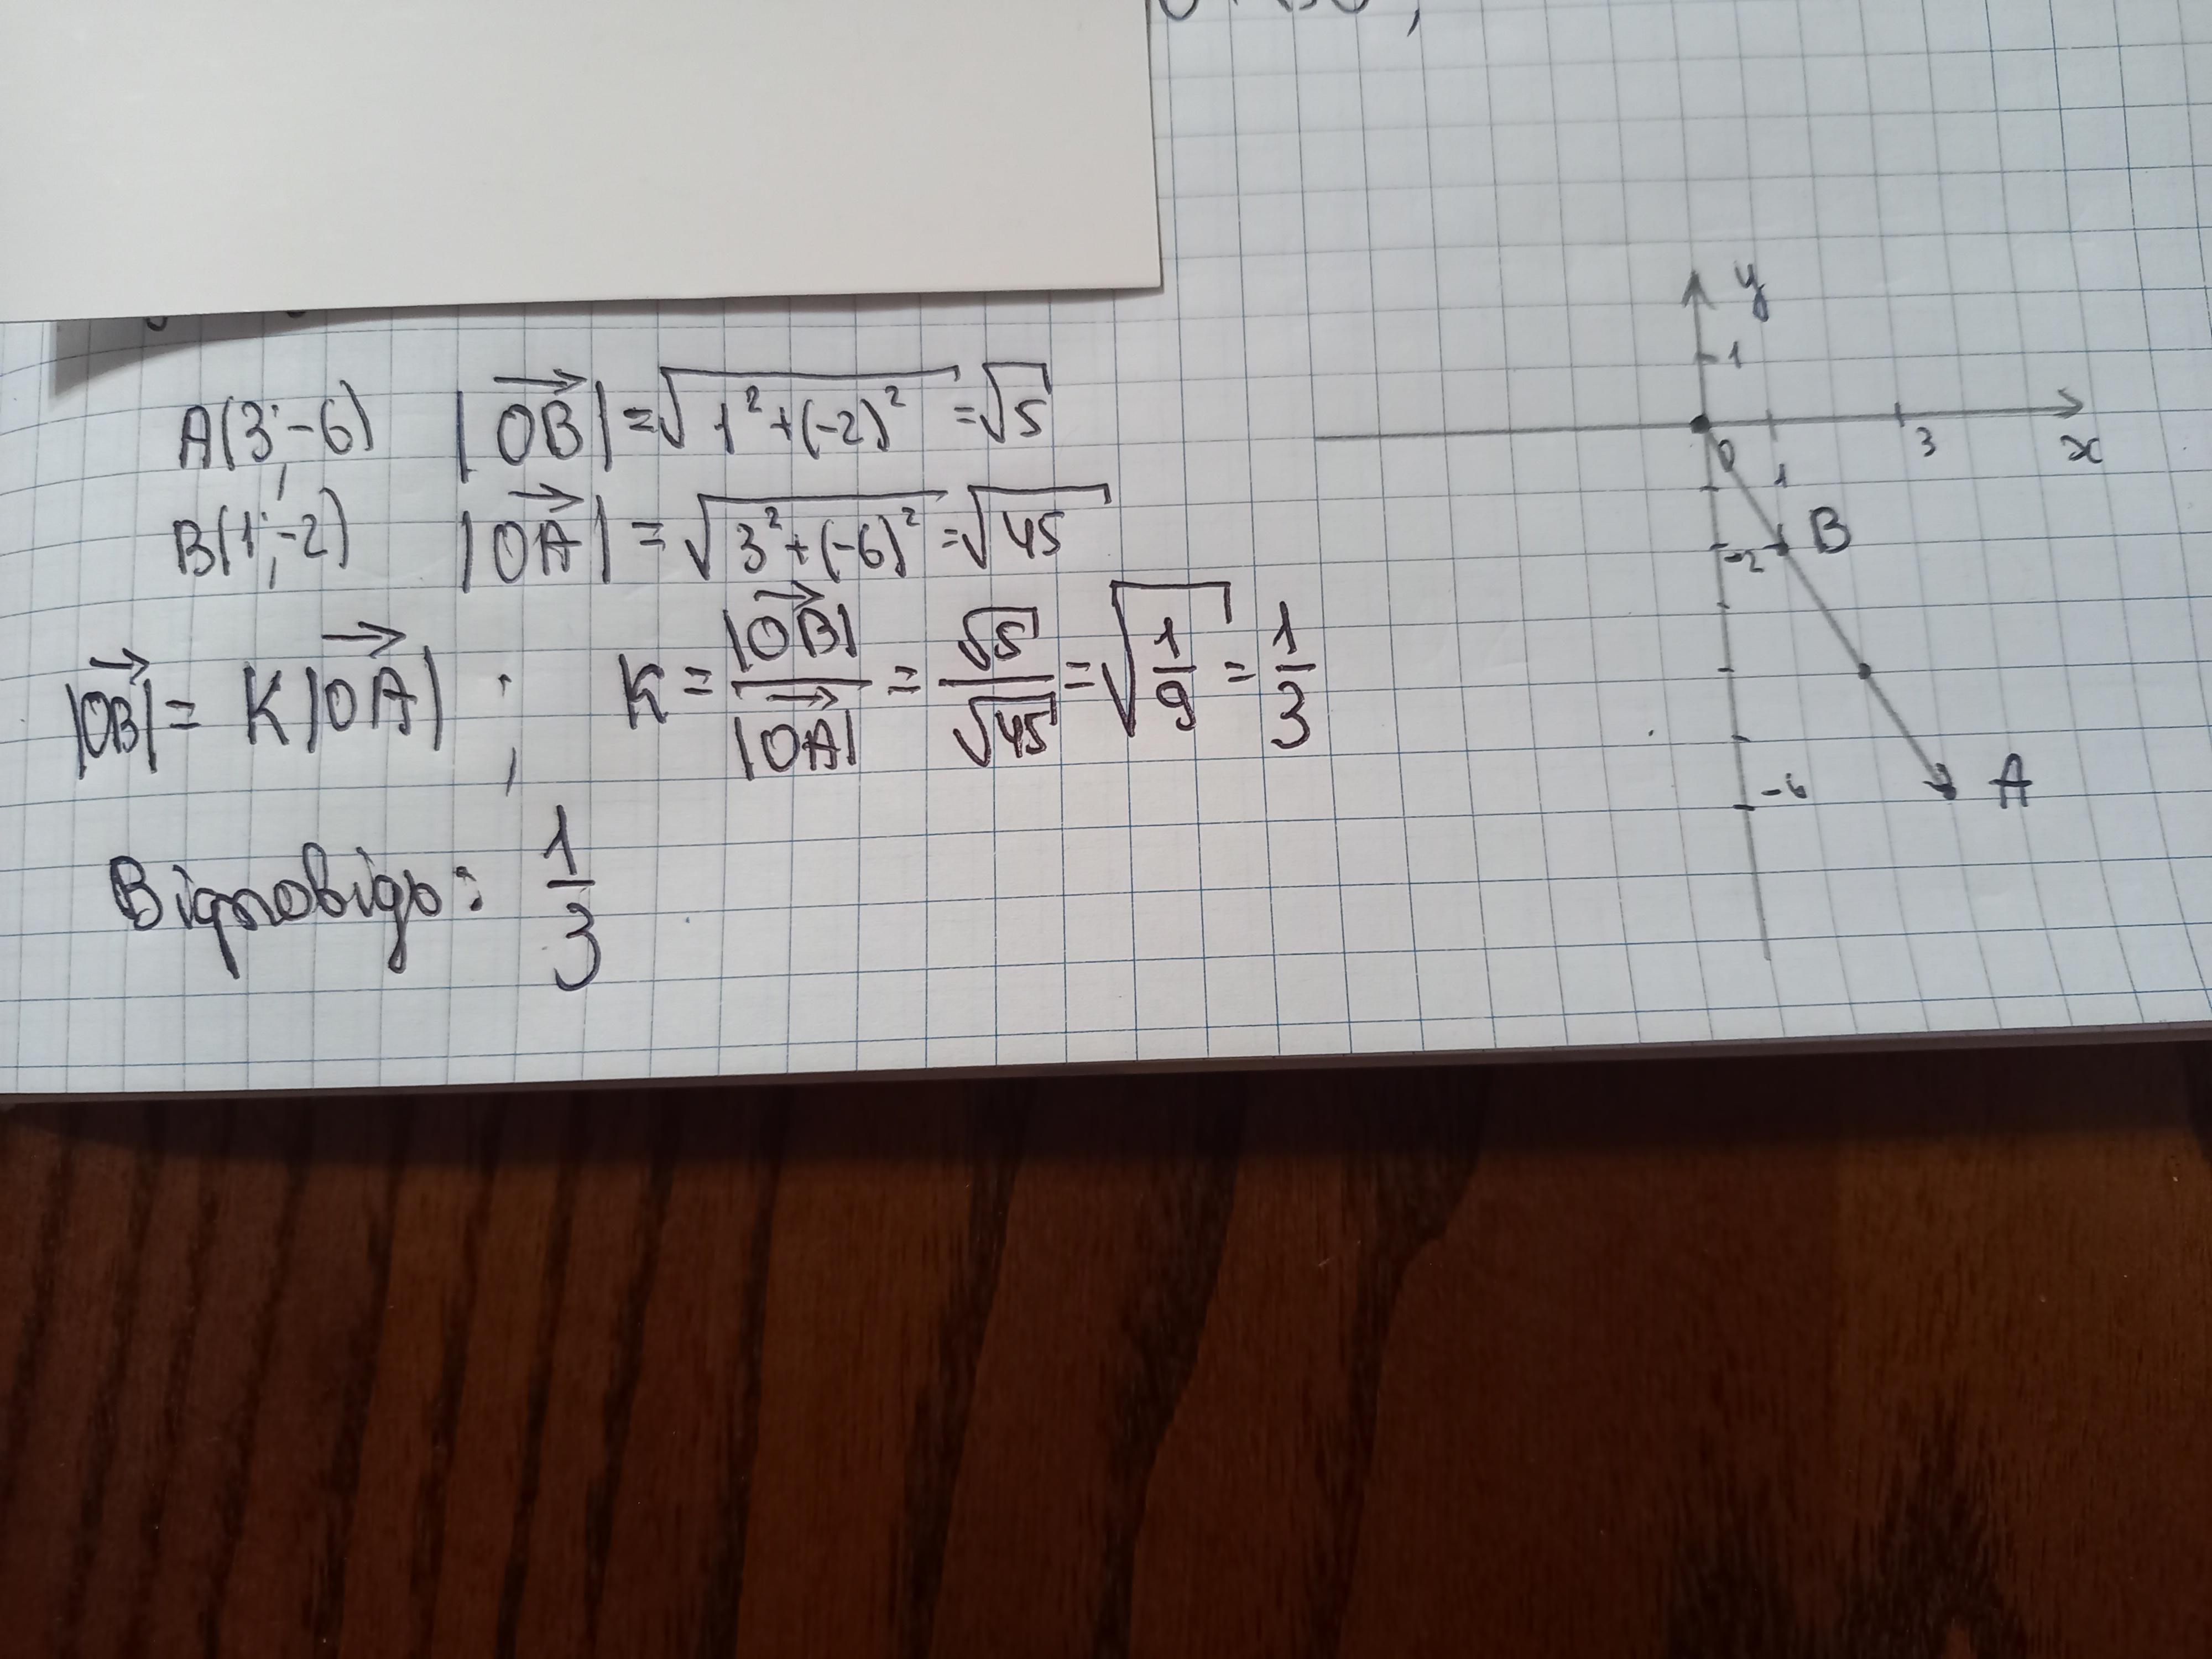 A(3;-6) |OB| = √(1² + (-2)²) = √5
B(1;-2) |OA| = √(3² + (-6)²) = √45
|OB| = K|OA| ; K = |OB| / |OA| = √5 / √45 = √(1/9) = 1/3
Відповідь: 1/3
y
1
0 1 3 x
-2 B
-6 A